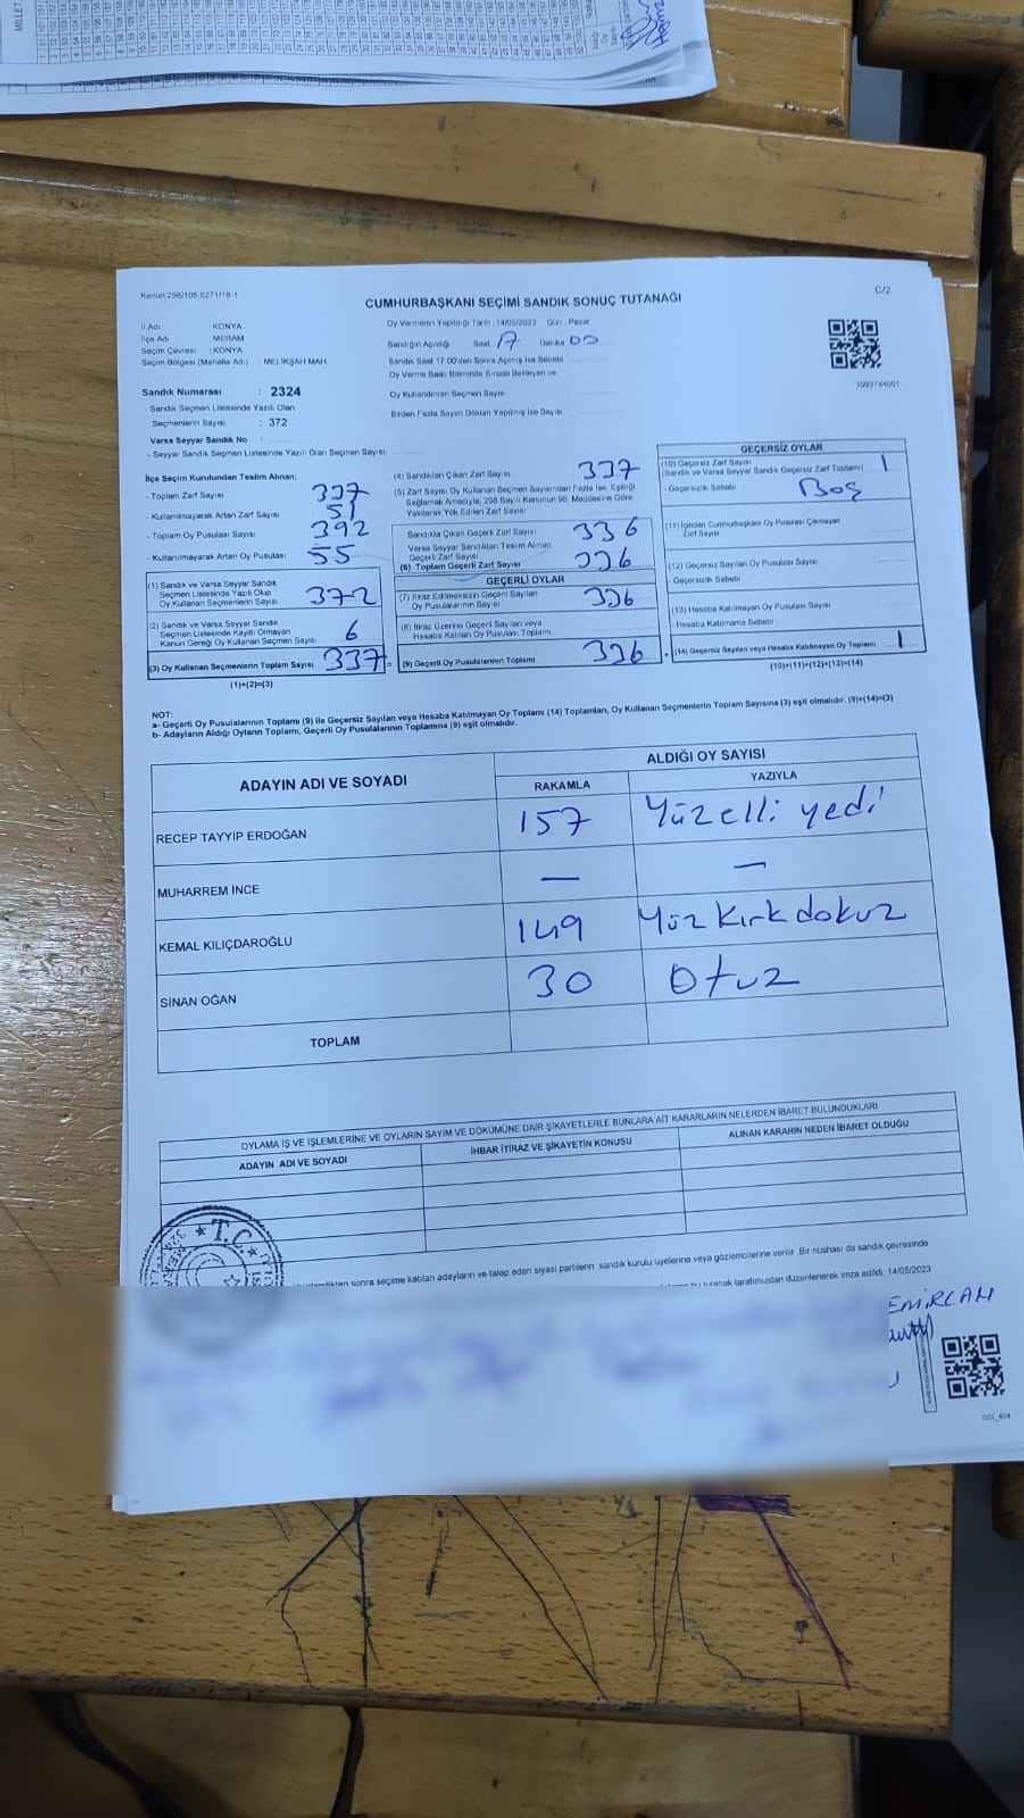 MİLLET
Kanun 298/105,6271/18-1
C/2
CUMHURBAŞKANI SEÇİMİ SANDIK SONUÇ TUTANAĞI
İl Adı : KONYA
İlçe Adı : MERAM
Seçim Çevresi : KONYA
Seçim Bölgesi (Mahalle Adı) : MELİKŞAH MAH.
Oy Vermenin Yapıldığı Tarih : 14/05/2023 Gün : Pazar
Sandığın Açıldığı Saat 17 Dakika 00
Sandık Saat 17:00'den Sonra Açılmış İse Sebebi
Oy Kullandırılan Seçmen Sayısı
Birden Fazla Sayım Döküm Yapılmış İse Sayısı
Sandık Numarası : 2324
- Sandık Seçmen Listesinde Yazılı Olan
Seçmenlerin Sayısı : 372
Varsa Seyyar Sandık No
- Seyyar Sandık Seçmen Listesinde Yazılı Olan Seçmen Sayısı
İlçe Seçim Kurulundan Teslim Alınan;
- Toplam Zarf Sayısı 397
- Kullanılmayarak Artan Zarf Sayısı 51
- Toplam Oy Pusulası Sayısı 392
- Kullanılmayarak Artan Oy Pusulası 55
(1) Sandık ve Varsa Seyyar Sandık
Seçmen Listesinde Yazılı Olup
Oy Kullanan Seçmenlerin Sayısı 372
(2) Sandık ve Varsa Seyyar Sandık
Seçmen Listesinde Kayıtlı Olmayan
Kanun Gereği Oy Kullanan Seçmen Sayısı 6
(3) Oy Kullanan Seçmenlerin Toplam Sayısı 337
(1)+(2)=(3)
(4) Sandıktan Çıkan Zarf Sayısı 337
(5) Zarf Sayısı Oy Kullanan Seçmen Sayısından Fazla İse, Eşitliği
Sağlamak Amacıyla, 298 Sayılı Kanunun 98. Maddesine Göre
Yakılarak Yok Edilen Zarf Sayısı
Sandıkta Çıkan Geçerli Zarf Sayısı 336
Varsa Seyyar Sandıktan Teslim Alınan
Geçerli Zarf Sayısı
(6) Toplam Geçerli Zarf Sayısı 336
GEÇERLİ OYLAR
(7) İtiraz Edilmeksizin Geçerli Sayılan
Oy Pusulalarının Sayısı 336
(8) İtiraz Üzerine Geçerli Sayılan veya
Hesaba Katılan Oy Pusulası Toplamı
(9) Geçerli Oy Pusulalarının Toplamı 336
GEÇERSİZ OYLAR
(10) Geçersiz Zarf Sayısı
(Sandık ve Varsa Seyyar Sandık Geçersiz Zarf Toplamı) 1
- Geçersizlik Sebebi Boş
(11) İçinden Cumhurbaşkanı Oy Pusulası Çıkmayan
Zarf Sayısı
(12) Geçersiz Sayılan Oy Pusulası Sayısı
- Geçersizlik Sebebi
(13) Hesaba Katılmayan Oy Pusulası Sayısı
- Hesaba Katılmama Sebebi
(14) Geçersiz Sayılan veya Hesaba Katılmayan Oy Toplamı 1
(10)+(11)+(12)+(13)=(14)
NOT:
a- Geçerli Oy Pusulalarının Toplamı (9) ile Geçersiz Sayılan veya Hesaba Katılmayan Oy Toplamı (14) Toplamları, Oy Kullanan Seçmenlerin Toplam Sayısına (3) eşit olmalıdır. (9)+(14)=(3)
b- Adayların Aldığı Oyların Toplamı, Geçerli Oy Pusulalarının Toplamına (9) eşit olmalıdır.
ADAYIN ADI VE SOYADI ALDIĞI OY SAYISI
RAKAMLA YAZIYLA
RECEP TAYYİP ERDOĞAN 157 Yüzelli yedi
MUHARREM İNCE — —
KEMAL KILIÇDAROĞLU 149 Yüz Kırk dokuz
SİNAN OĞAN 30 Otuz
TOPLAM
OYLAMA İŞ VE İŞLEMLERİNE VE OYLARIN SAYIM VE DÖKÜMÜNE DAİR ŞİKAYETLERLE BUNLARA AİT KARARLARIN NELERDEN İBARET BULUNDUKLARI
ADAYIN ADI VE SOYADI İHBAR İTİRAZ VE ŞİKAYETİN KONUSU ALINAN KARARIN NEDEN İBARET OLDUĞU
T.C.
sonra seçime katılan adayların ve talep eden siyasi partilerin sandık kurulu üyelerine veya gözlemcilerine verilir. Bir nüshası da sandık çevresinde
tutanak tarafımızdan düzenlenerek imza edildi. 14/05/2023
EMİRCAN